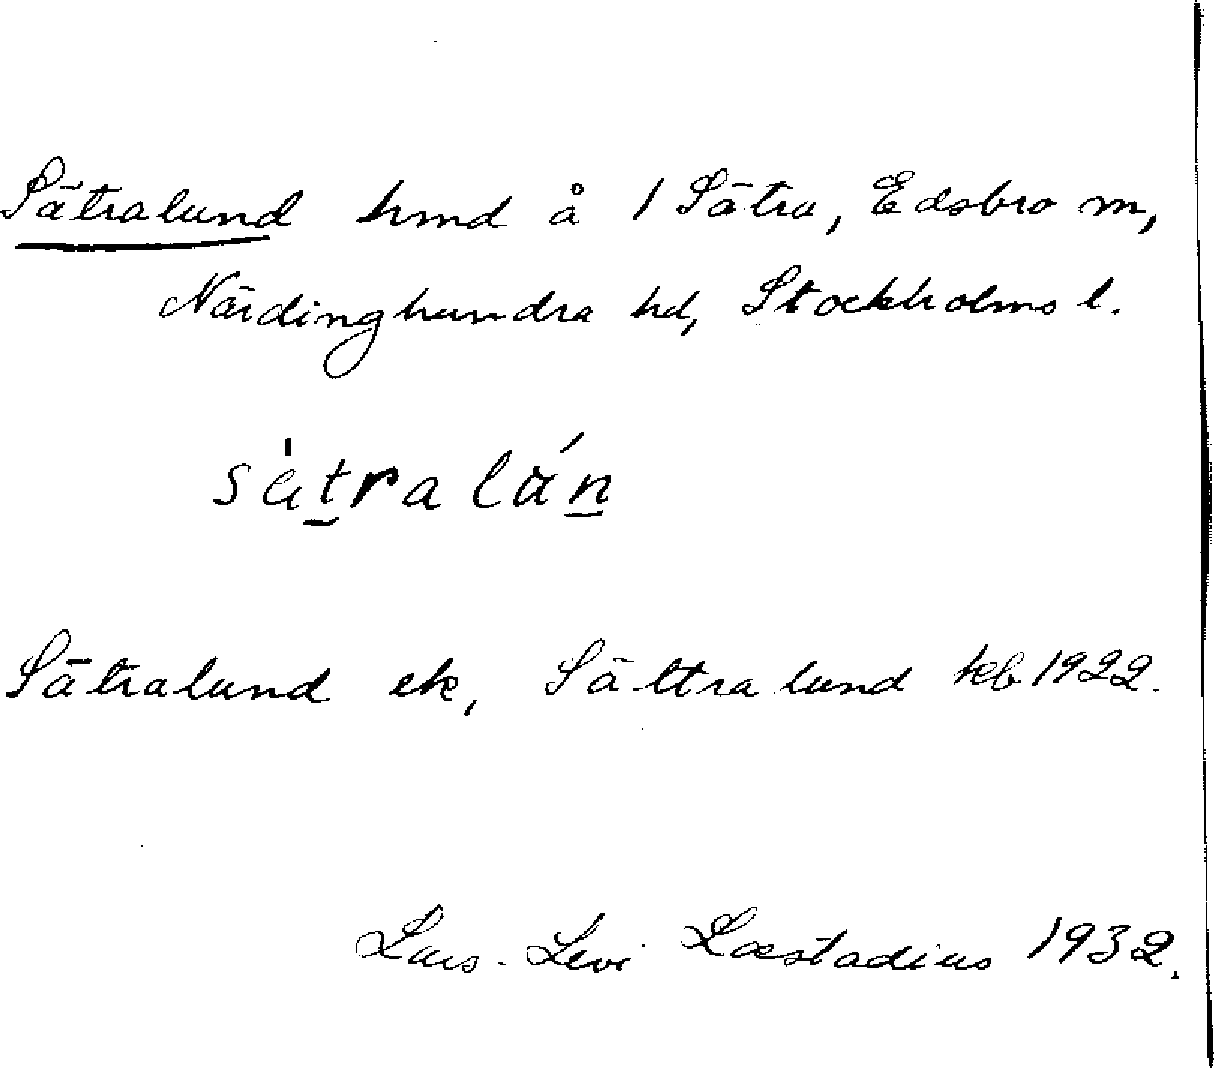 Sätralund hmd å 1 Sätra, Edsbro sn,
Närdinghundra hd, Stockholms l.
sätralán
Sätralund ek, Sättralund kb 1922.
Lars-Levi Læstadius 1932.